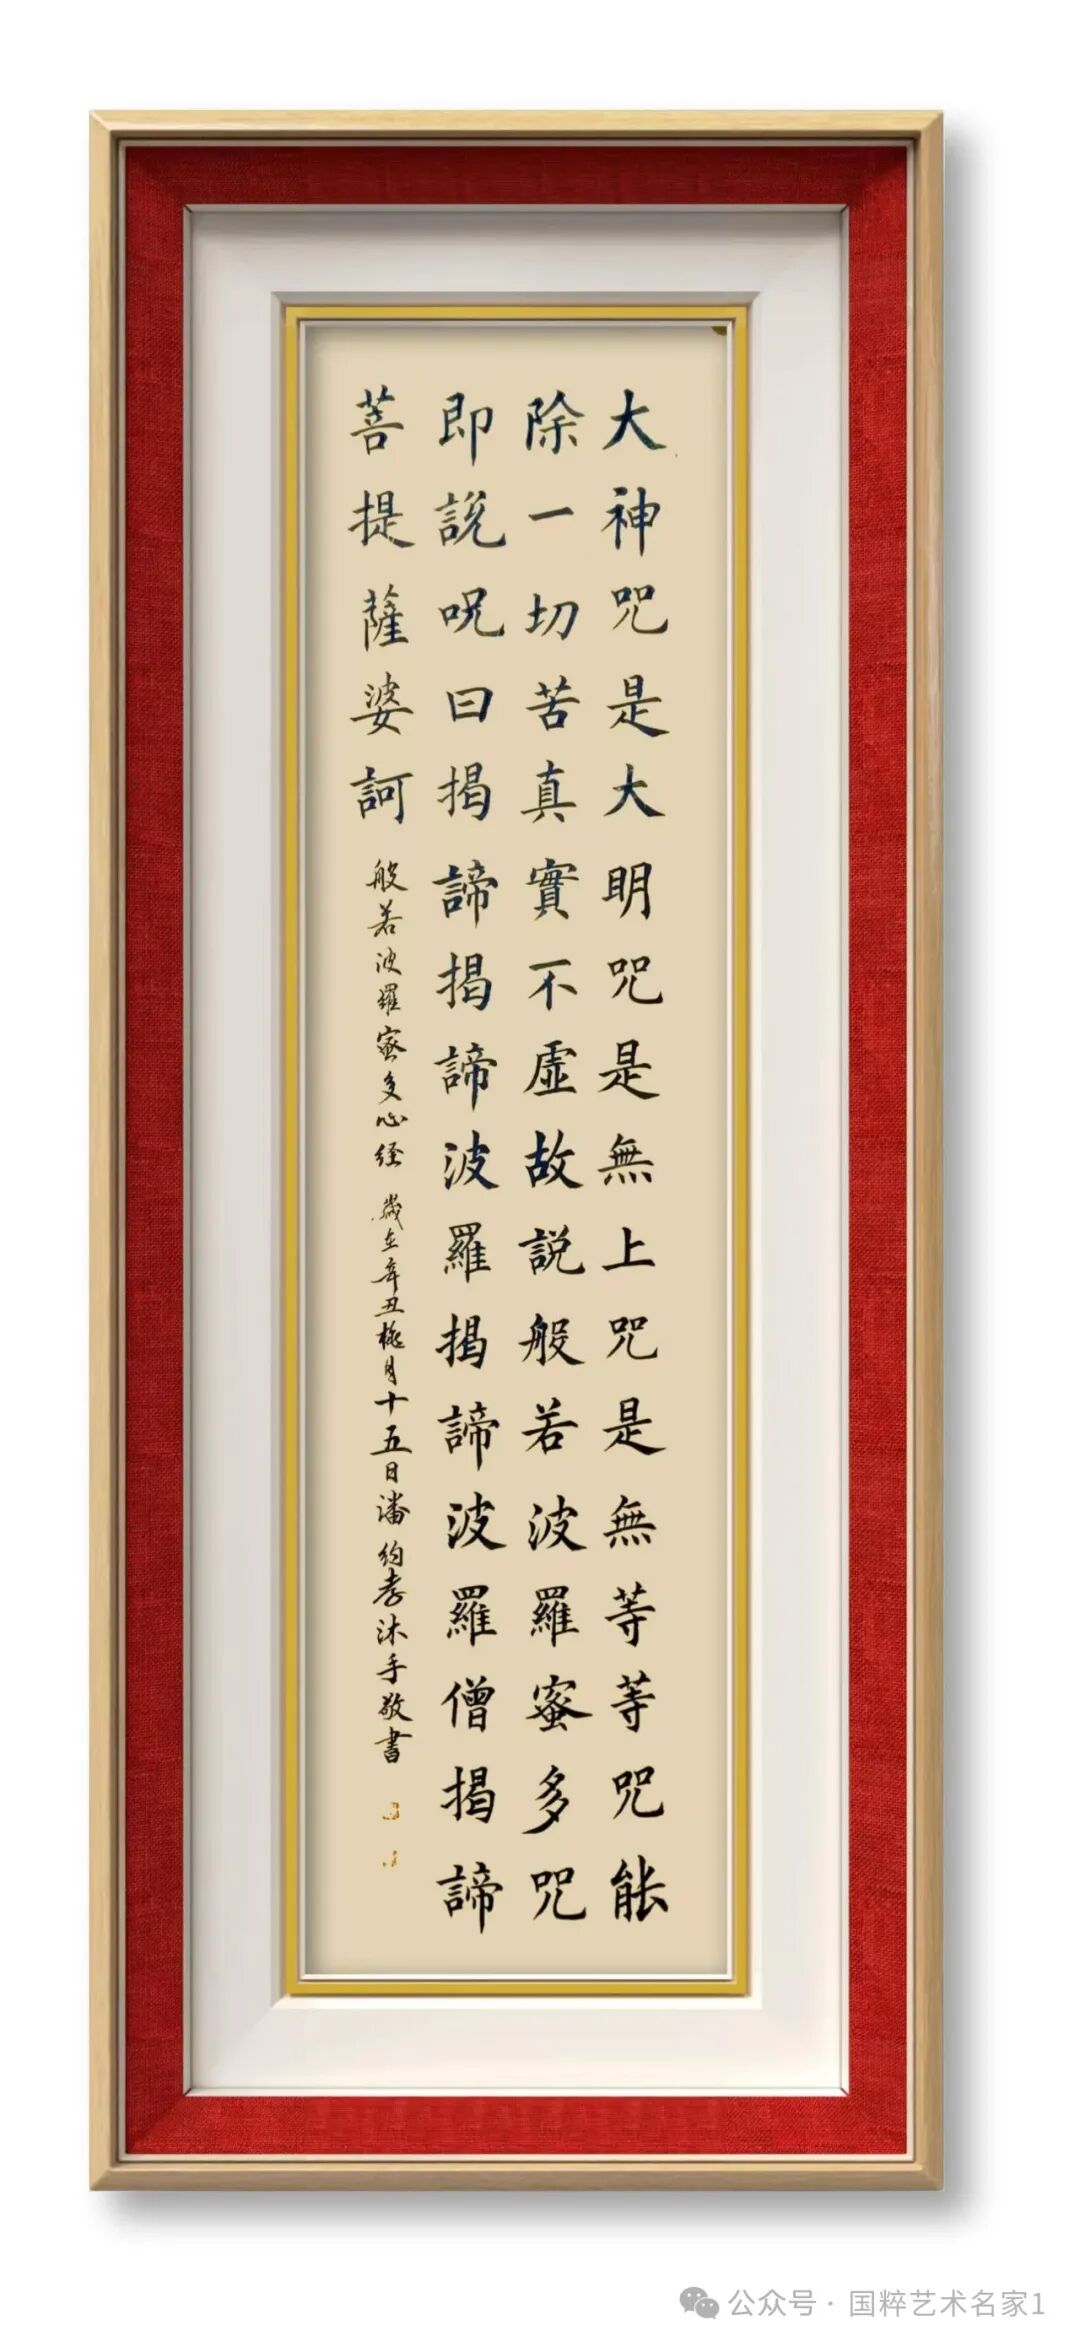 大神咒是大明咒是無上咒是無等等咒能
除一切苦真實不虛故説般若波羅蜜多咒
即説呪曰揭諦揭諦波羅揭諦波羅僧揭諦
菩提薩婆訶
般若波羅蜜多心经 歲在辛丑梅月十五日潘钧孝沐手敬書
公众号 · 国粹艺术名家1